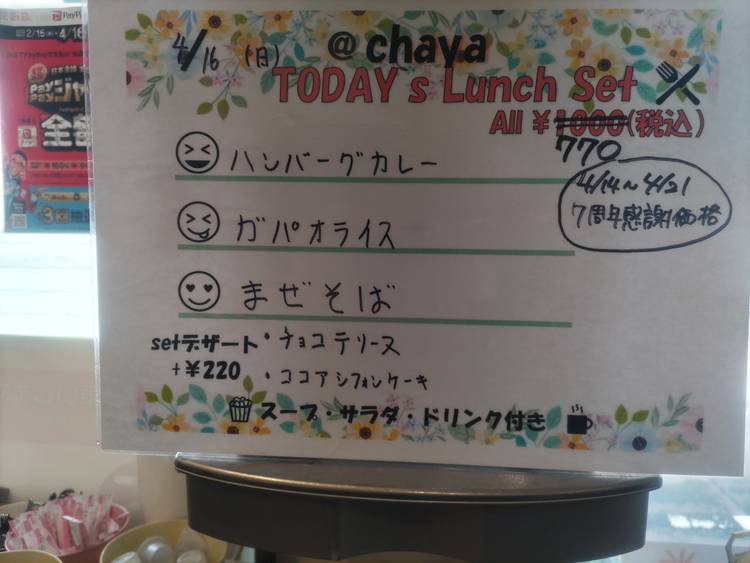 PayPay
2/15(水)▸4/16
Pay
Pay
ジャン
全
3回
4/16(日)
@chaya
TODAY's Lunch Set
All ¥1000(税込)
770
4/14〜4/21
7周年感謝価格
ハンバーグカレー
ガパオライス
まぜそば
setデザート
+¥220
・チョコテリーヌ
・ココアシフォンケーキ
スープ・サラダ・ドリンク付き